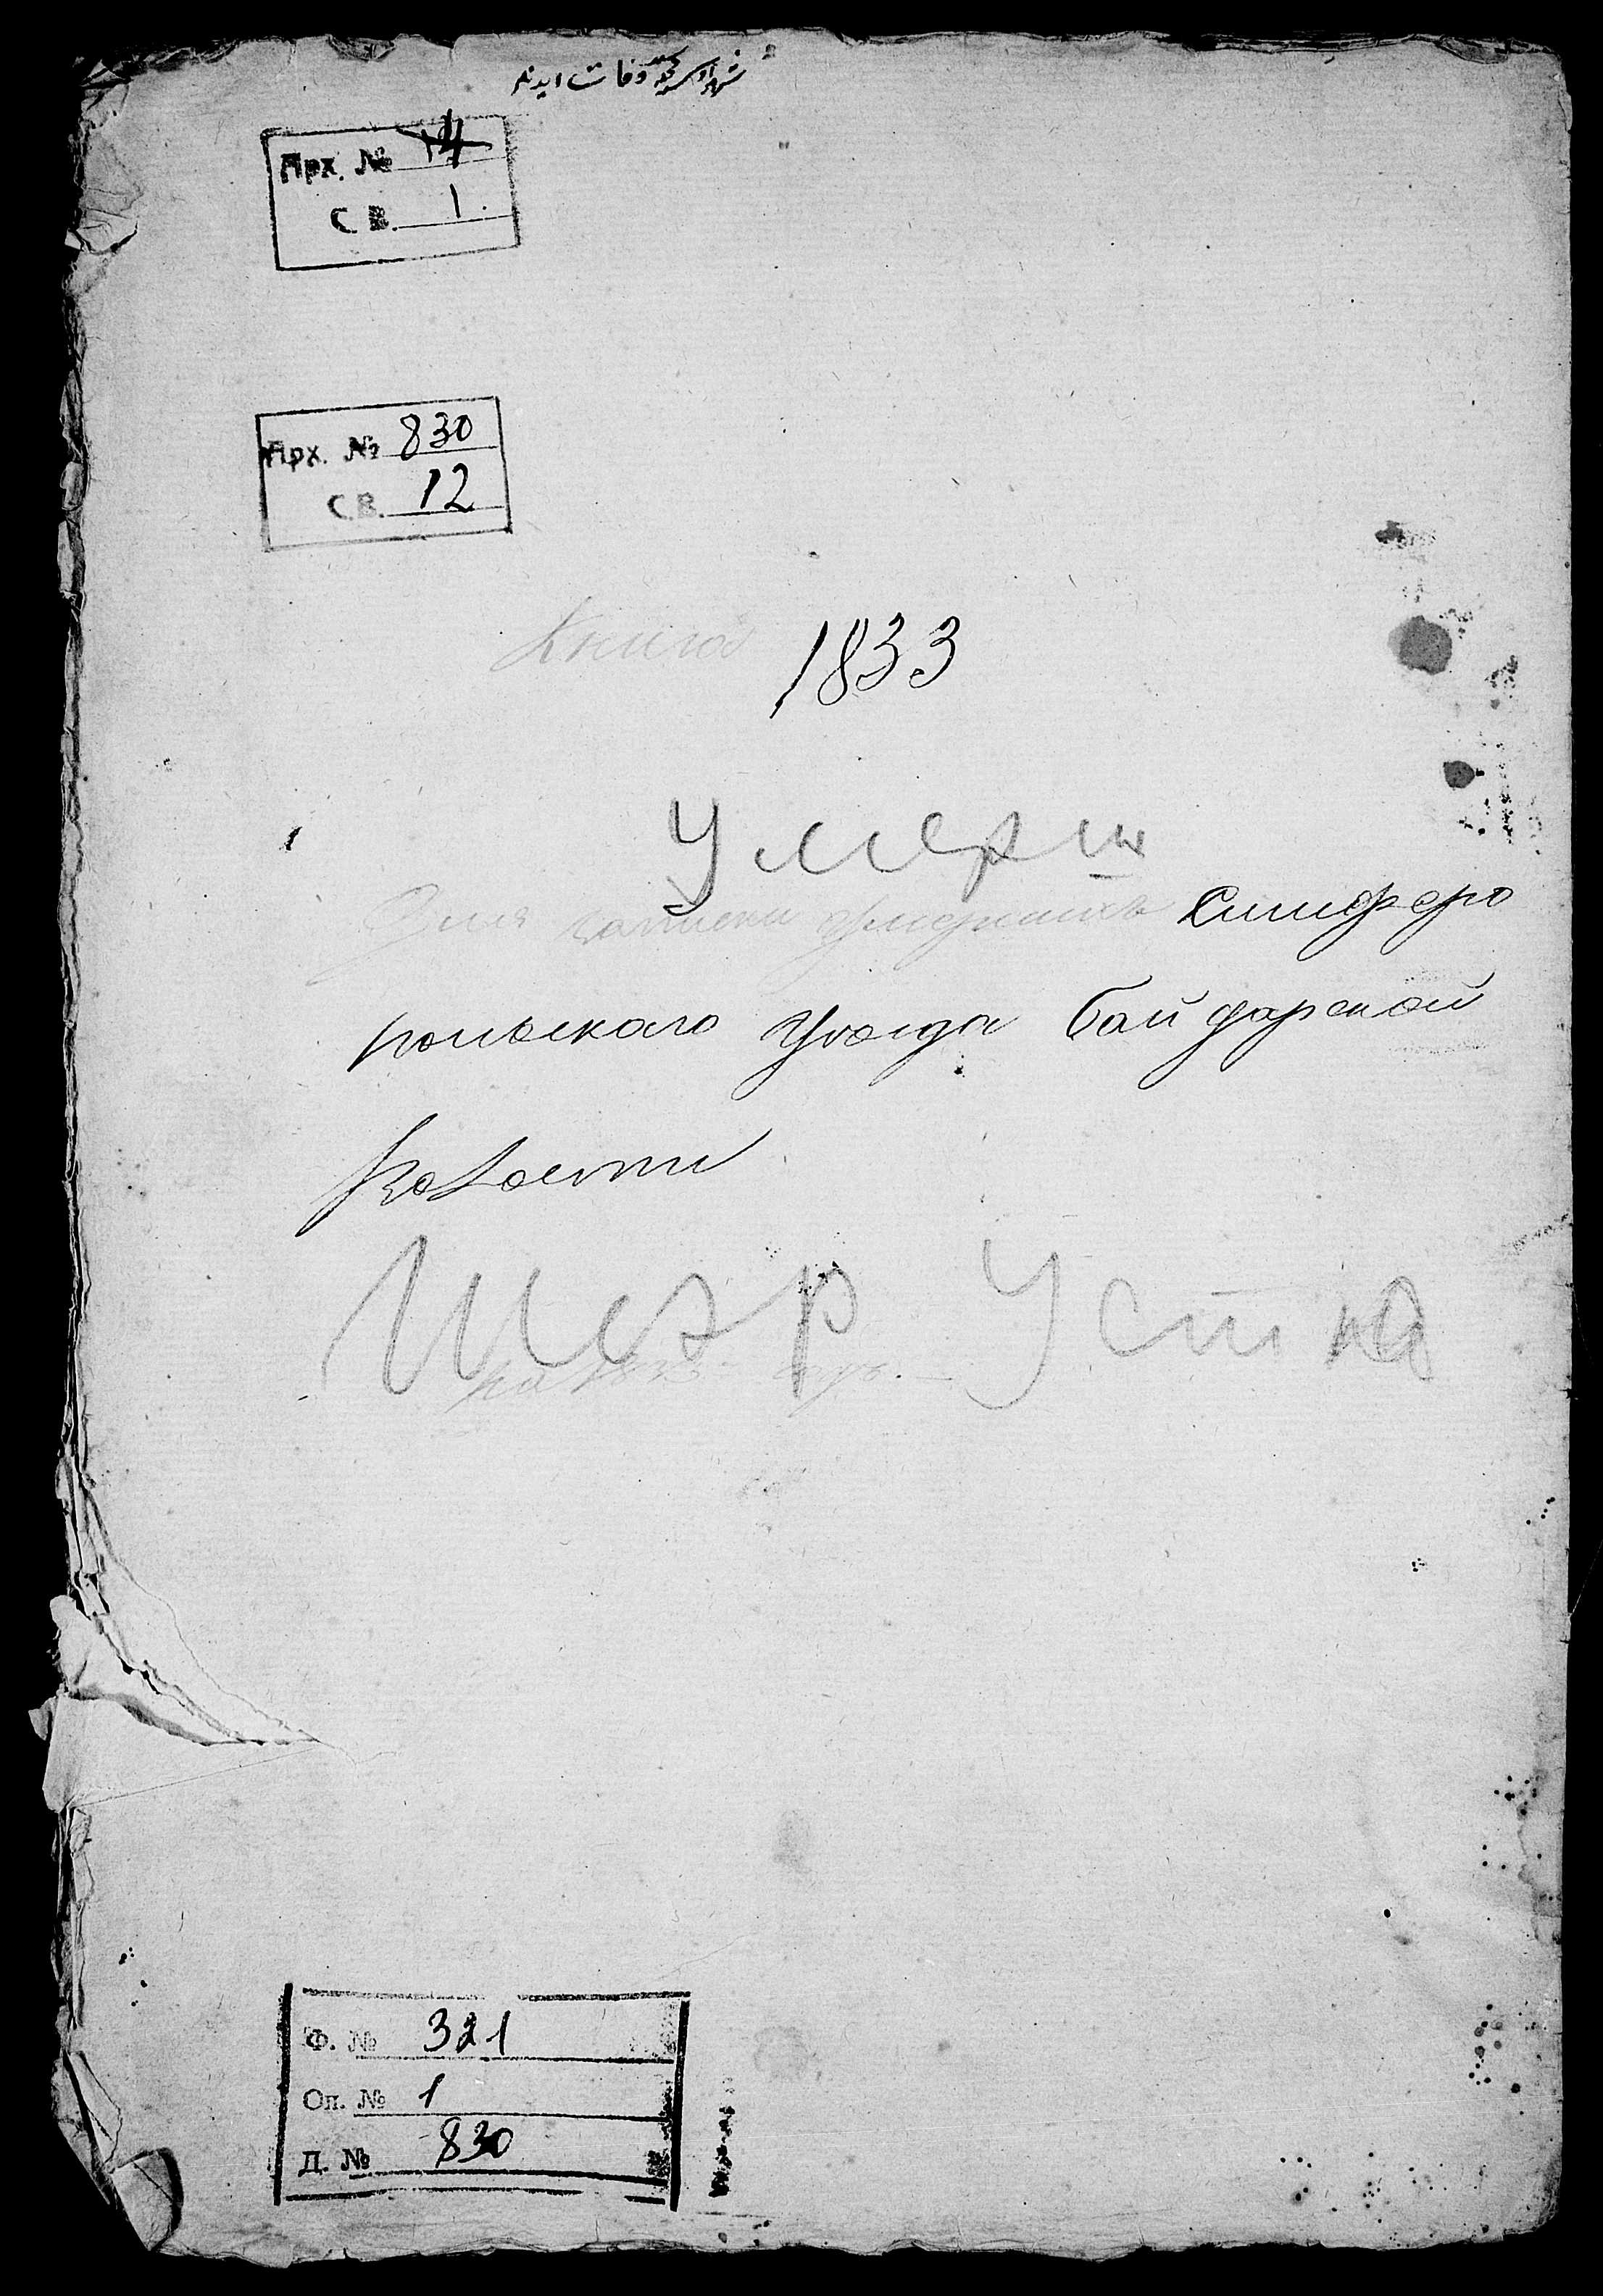 وفات ايدنلر
Арх. № 14
С В. 1.
Арх. № 830
С.В. 12
Книга 1833
Умерш
Для записки умершихъ Симферо
польскаго Уѣзда Байдарской
Волости
Шар Устка
на 1833 годъ.
Ф. № 321
Оп. № 1
Д. № 830